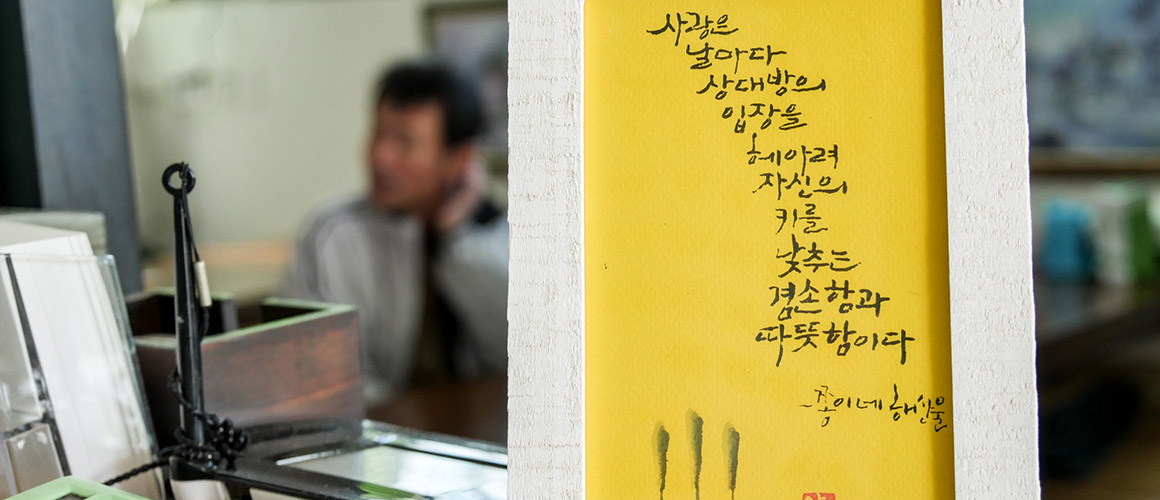 사랑은
날마다
상대방의
입장을
헤아려
자신의
키를
낮추는
겸손함과
따뜻함이다
쫑이네 해산물